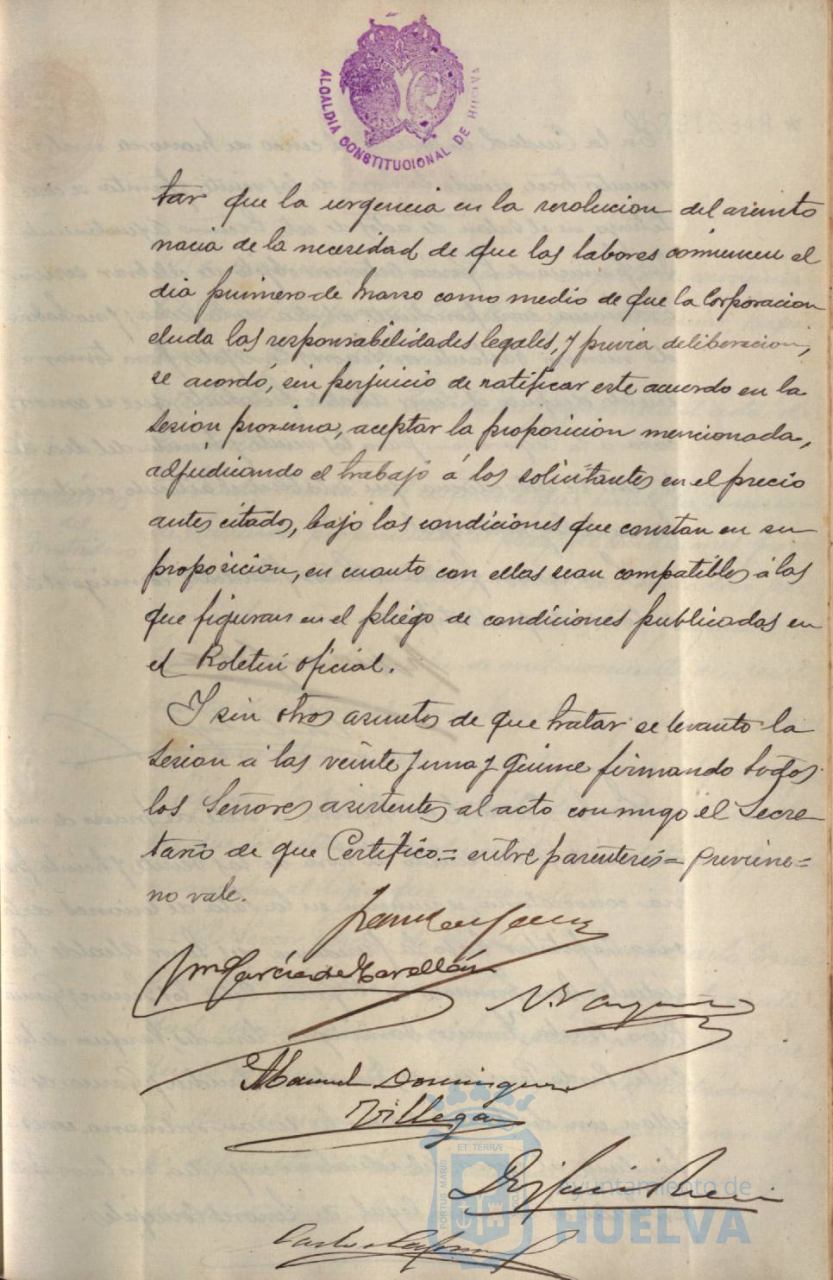 ALCALDIA CONSTITUCIONAL DE HUELVA
tar que la urgencia en la resolucion del asunto
nacia de la necesidad de que las labores comiencen el
dia primero de Marzo como medio de que la Corporacion
eluda las responsabilidades legales, y previa deliberacion,
se acordó, sin perjuicio de ratificar este acuerdo en la
sesion proxima, aceptar la proposicion mencionada,
adjudicando el trabajo á los solicitantes en el precio
antes citado, bajo las condiciones que constan en su
proposicion, en cuanto con ellas sean compatibles á las
que figuran en el pliego de condiciones publicadas en
el Boletin oficial.
Y sin otros asuntos de que tratar se levanto la
sesion á las veinte y una y quince firmando todos
los Señores asistentes al acto conmigo el Secre-
tario de que Certifico.= entre parentesis= previene=
no vale.
Garcia de
Manuel Dominguez
Villegas
ET TERRÆ
PORTUS MARIS
Ayuntamiento de
HUELVA